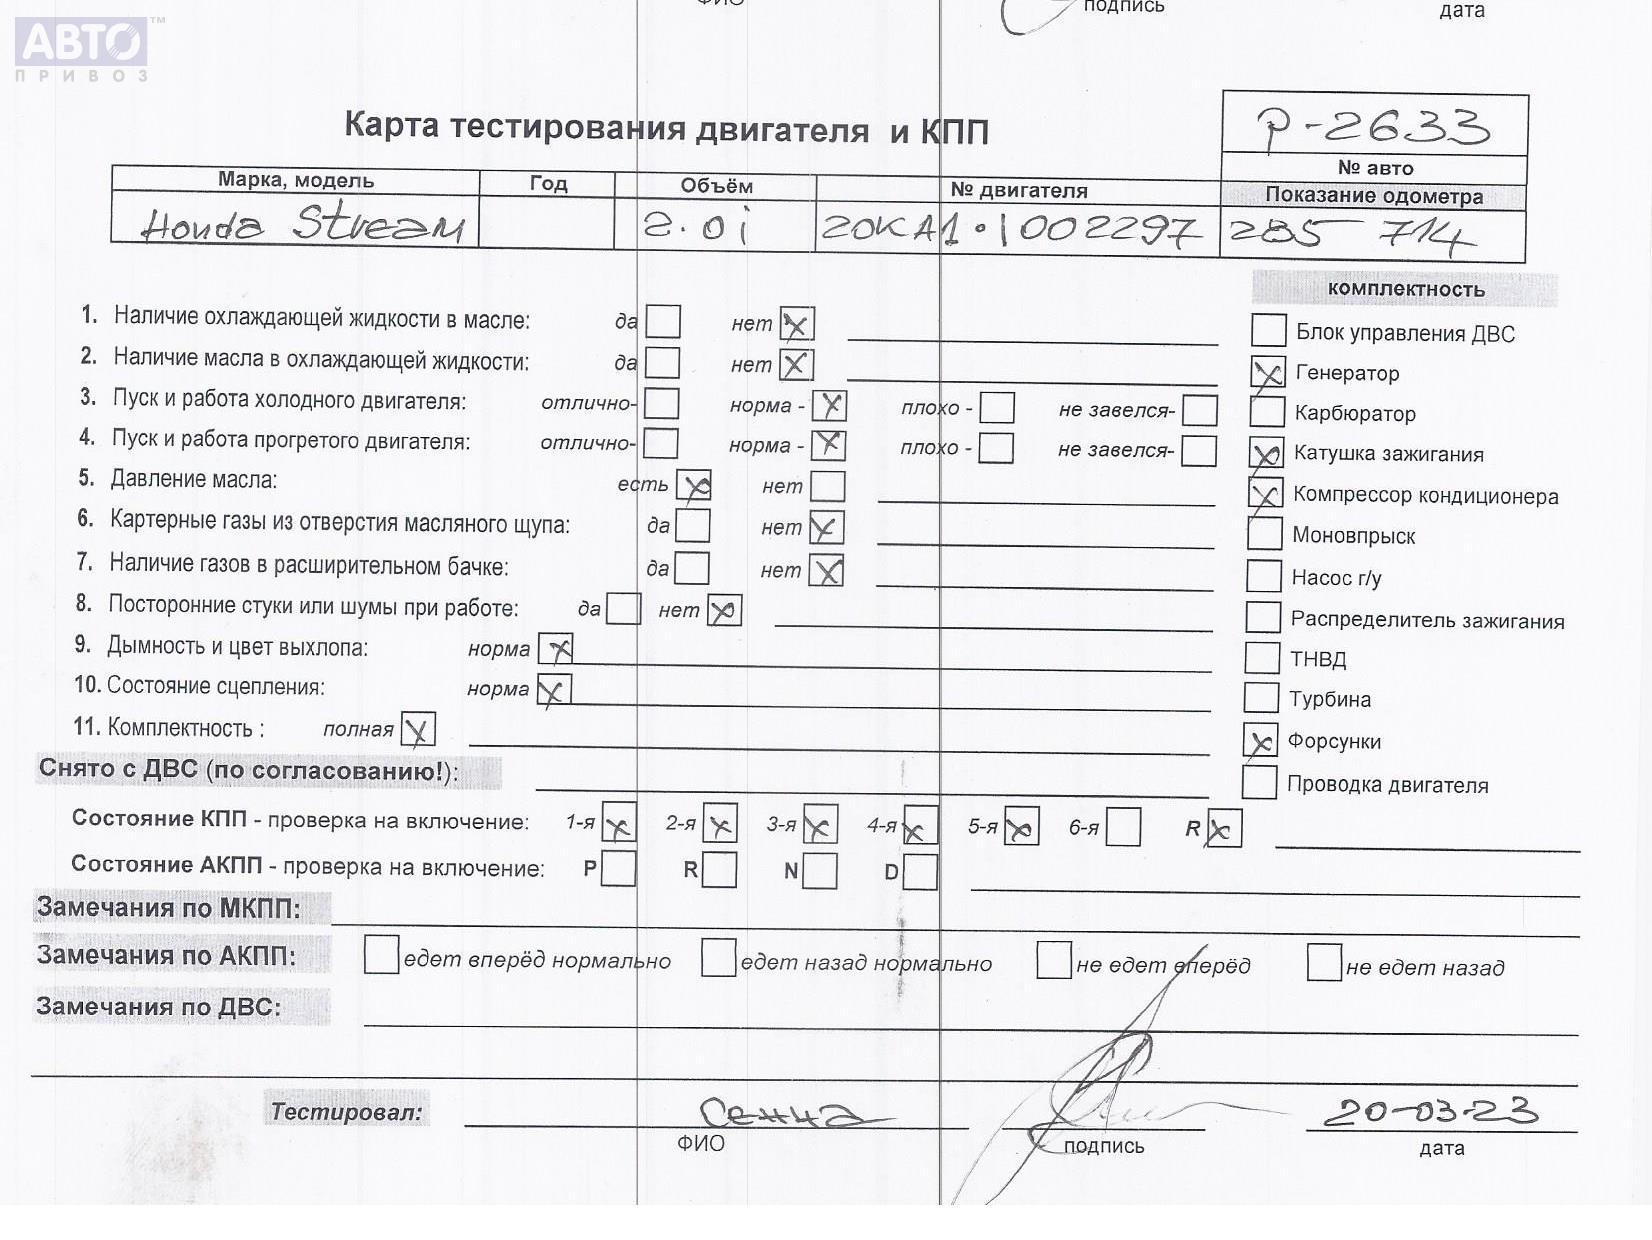 ФИО подпись дата
АВТО™
ПРИВОЗ
Карта тестирования двигателя и КПП
P-2633
№ авто
Марка, модель Год Объём № двигателя Показание одометра
Honda Stream 2.0i 20KA1•1002297 285 714
комплектность
1. Наличие охлаждающей жидкости в масле: да нет
2. Наличие масла в охлаждающей жидкости: да нет
3. Пуск и работа холодного двигателя: отлично- норма - плохо - не завелся-
4. Пуск и работа прогретого двигателя: отлично- норма - плохо - не завелся-
5. Давление масла: есть нет
6. Картерные газы из отверстия масляного щупа: да нет
7. Наличие газов в расширительном бачке: да нет
8. Посторонние стуки или шумы при работе: да нет
9. Дымность и цвет выхлопа: норма
10. Состояние сцепления: норма
11. Комплектность : полная
Блок управления ДВС
Генератор
Карбюратор
Катушка зажигания
Компрессор кондиционера
Моновпрыск
Насос г/у
Распределитель зажигания
ТНВД
Турбина
Форсунки
Проводка двигателя
Снято с ДВС (по согласованию!):
Состояние КПП - проверка на включение: 1-я 2-я 3-я 4-я 5-я 6-я R
Состояние АКПП - проверка на включение: P R N D
Замечания по МКПП:
Замечания по АКПП: едет вперёд нормально едет назад нормально не едет вперёд не едет назад
Замечания по ДВС:
Тестировал: 20-03-23
ФИО подпись дата